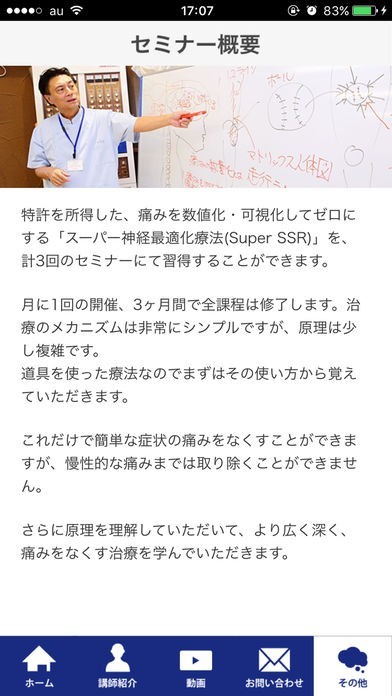 au 17:07 83%
セミナー概要
ボール
マトリックス人体図
特許を所得した、痛みを数値化・可視化してゼロに
する「スーパー神経最適化療法(Super SSR)」を、
計3回のセミナーにて習得することができます。
月に1回の開催、3ヶ月間で全課程は修了します。治
療のメカニズムは非常にシンプルですが、原理は少
し複雑です。
道具を使った療法なのでまずはその使い方から覚え
ていただきます。
これだけで簡単な症状の痛みをなくすことができま
すが、慢性的な痛みまでは取り除くことができませ
ん。
さらに原理を理解していただいて、より広く深く、
痛みをなくす治療を学んでいただきます。
ホーム 講師紹介 動画 お問い合わせ その他